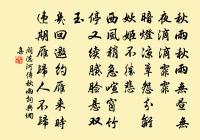 秋雨秋雨無晝無
夜滴滴霏霏
暗燈涼簟怨分離
妖姬不勝悲
西風稍急喧窗竹
停又續膩臉懸雙
玉
幾回邀約雁來時
違期雁歸人不歸
閻選河傳秋雨詞典網